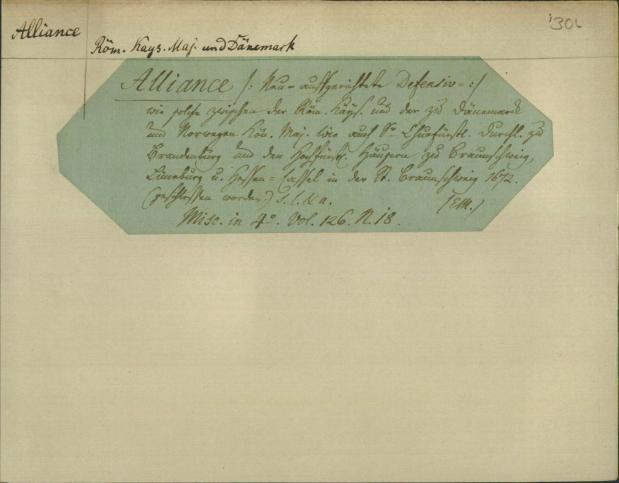 Alliance
301
Röm. Kays. Maj. und Dänemark
Alliance /: Neu-auffgerichtete Defensiv-:/
wie solche zwischen der Röm. Käys. und der zu Dänemarck
und Norwegen Kön. Maj. wie auch Sr. Churfürstl. Durchl. zu
Brandenburg und den Hochfürstl. Häusern zu Braunschweig,
Lüneburg u. Hessen-Cassel in der St. Braunschweig 1672.
(geschlossen worden.) S. l. & a.
Misc. in 4o. Vol. 126. N. 18.